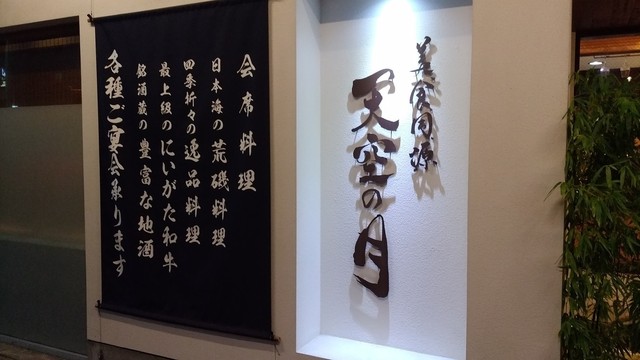 美食同源
天空の月
会席料理
日本海の荒磯料理
四季折々の逸品料理
最上級のにいがた和牛
銘酒蔵の豊富な地酒
各種ご宴会承ります